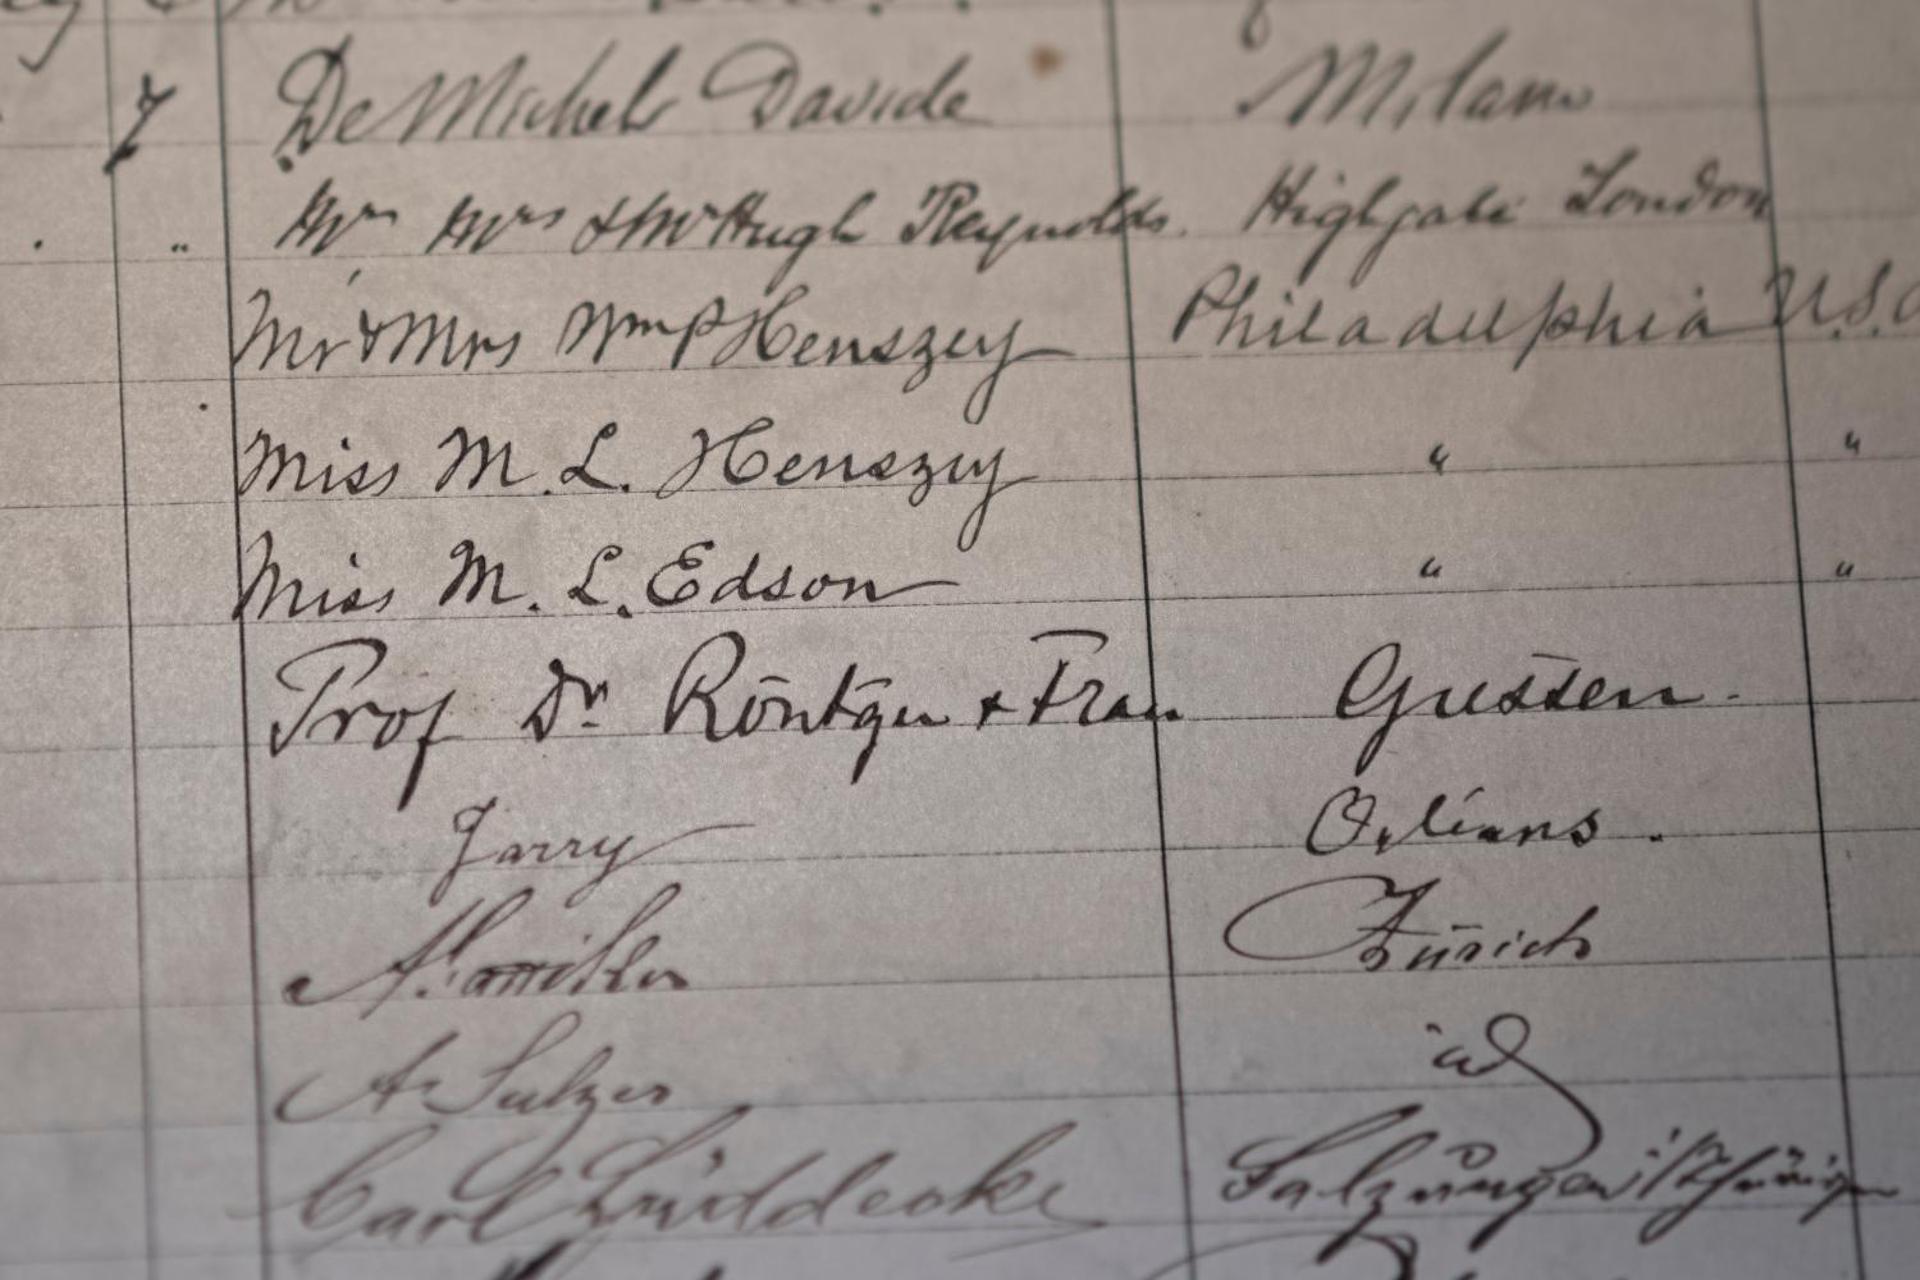 7 De Michel Davide Milano
. „ Mr Mrs & Mr Hugh Reynolds. Highgate London
Mr & Mrs Wm P Henszey Philadelphia U.S.
Miss M. L. Henszey " "
Miss M. L. Edson " "
Prof Dr Röntgen + Frau Giessen.
Jarry Orléans.
Zürich
A. Sulzer id
Carl Lüddecke Salzungen i/Thüringen